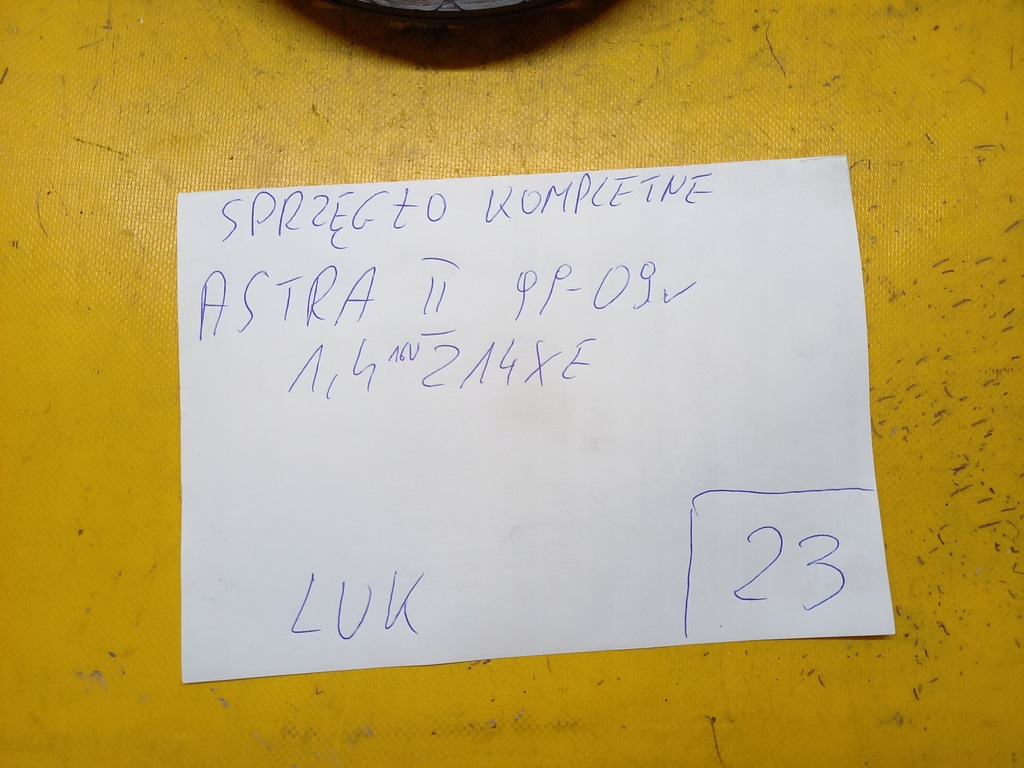 SPRZĘGŁO KOMPLETNE
ASTRA II 99-09r
1,4 16V Z14XE
LUK
23